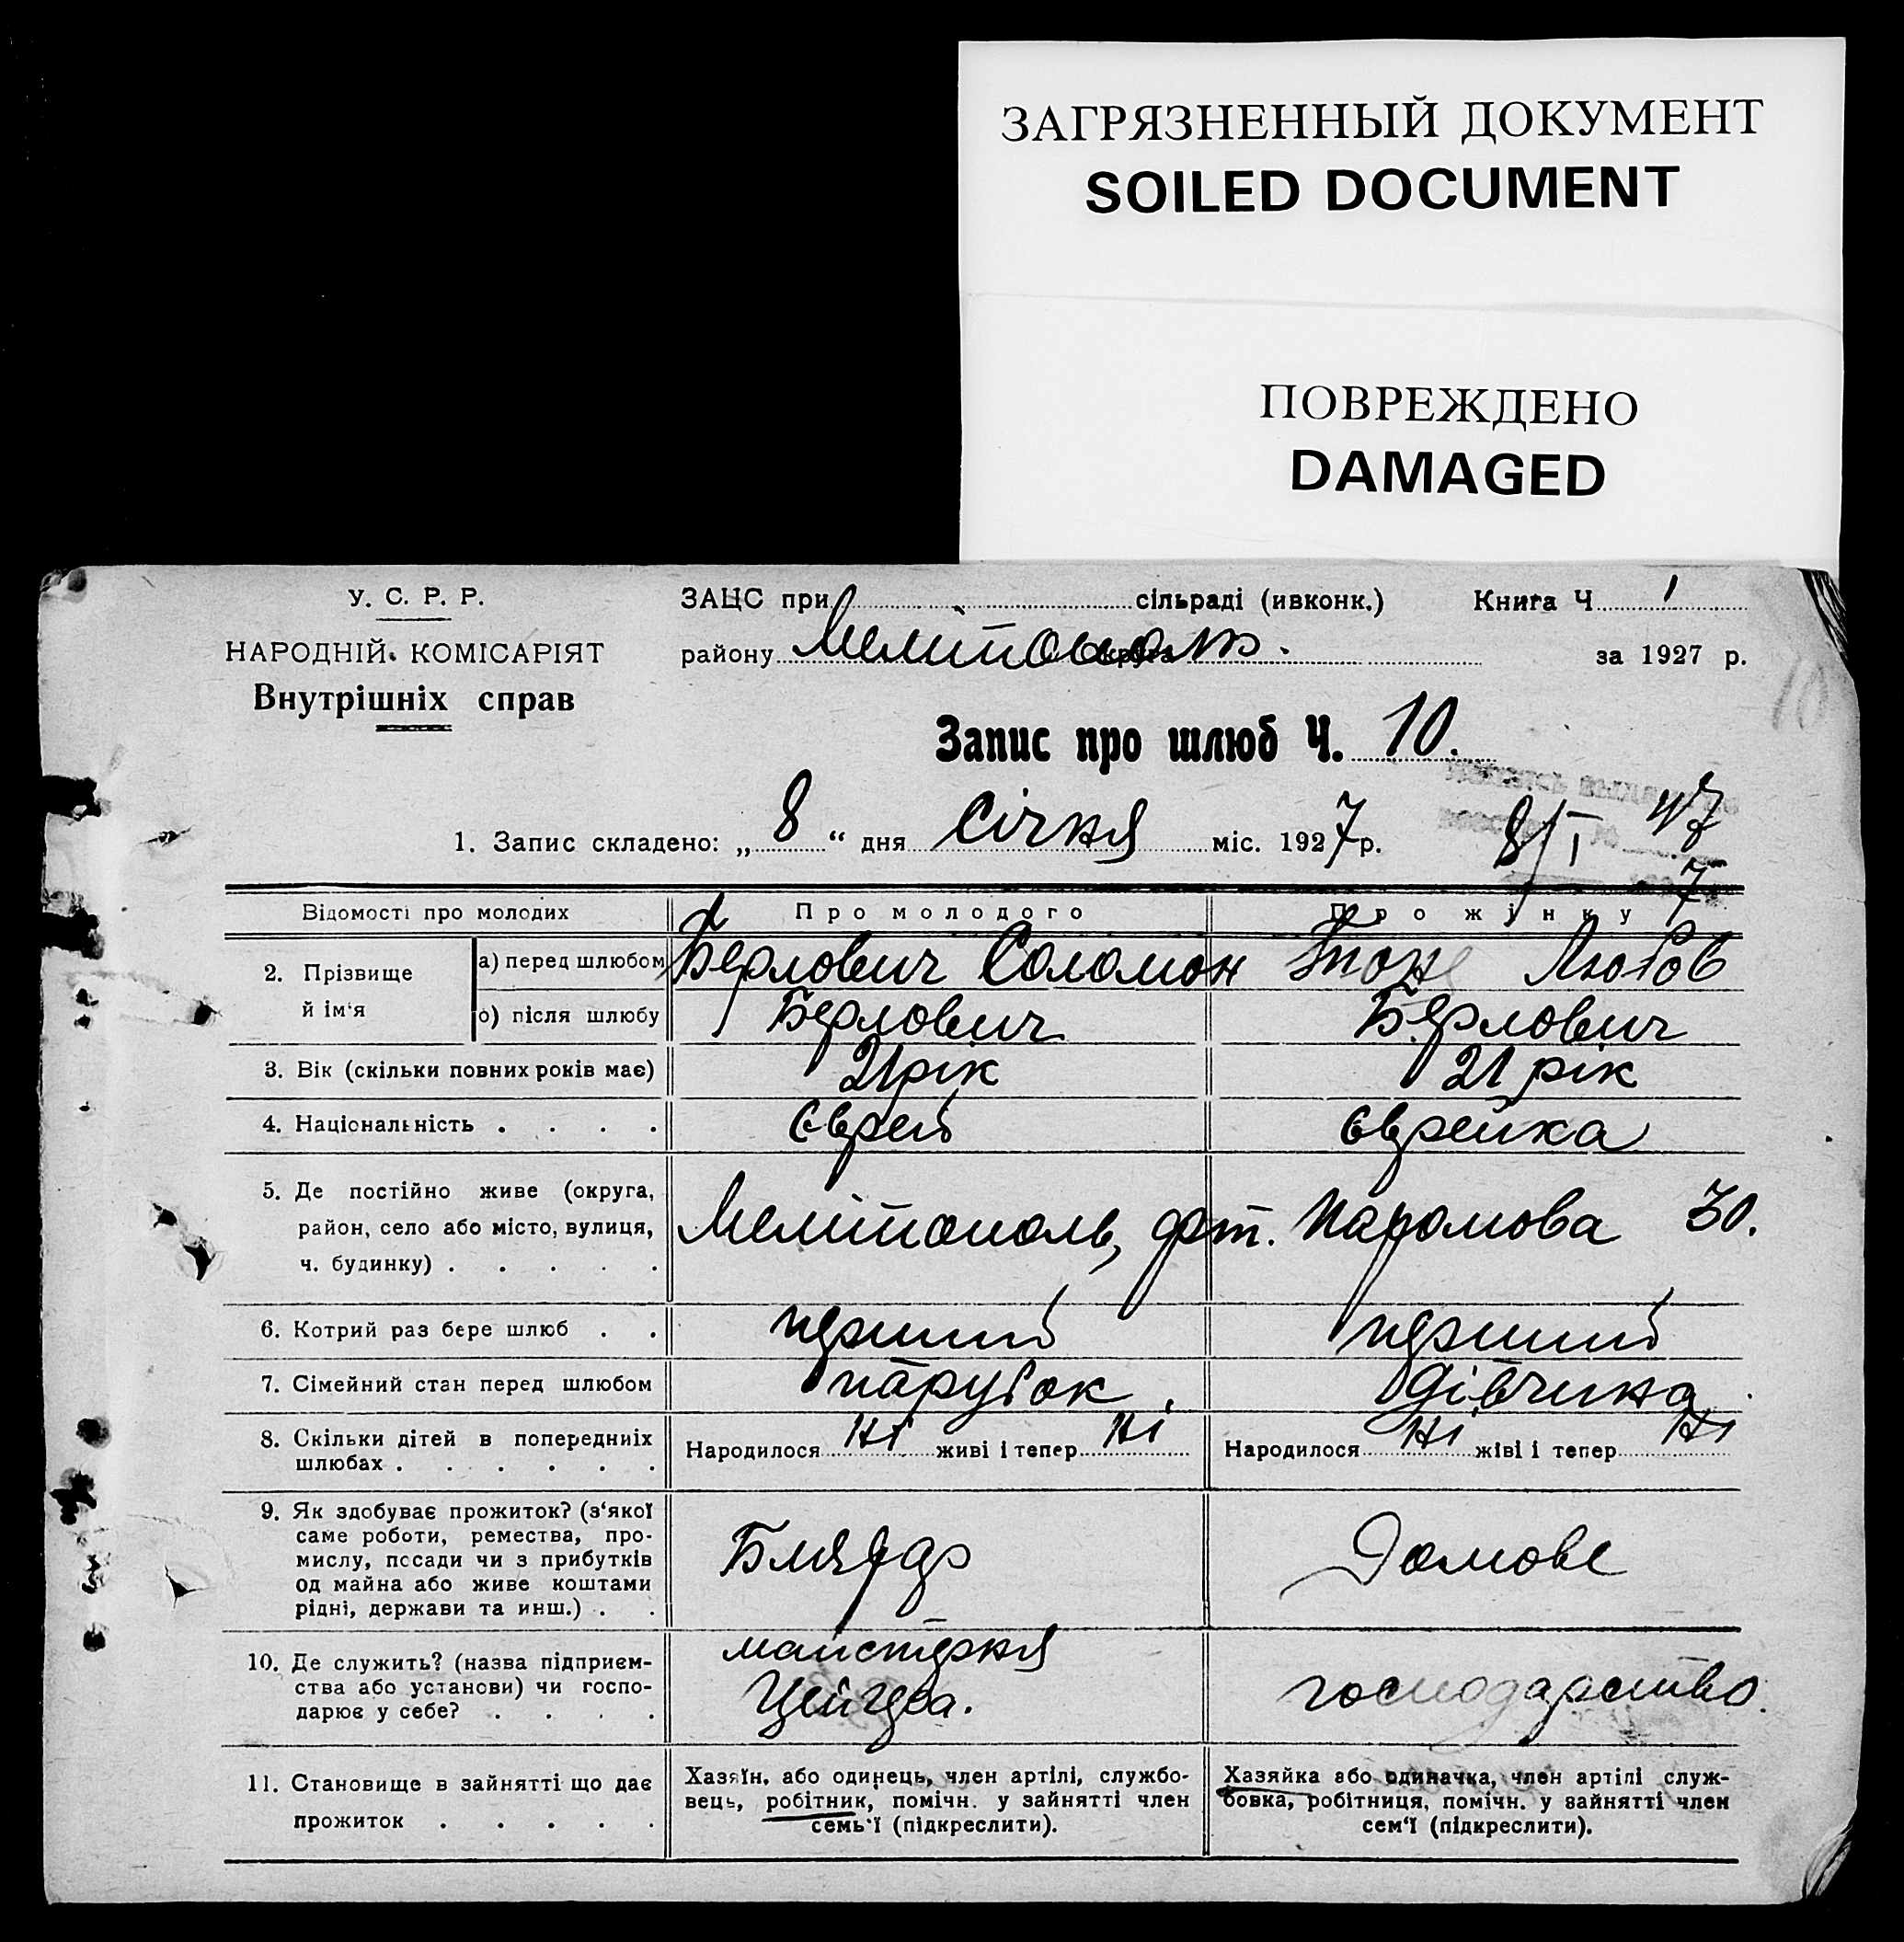 ЗАГРЯЗНЕННЫЙ ДОКУМЕНТ
SOILED DOCUMENT
ПОВРЕЖДЕНО
DAMAGED
У. С. Р. Р.
НАРОДНІЙ КОМІСАРІЯТ
Внутрішніх справ
ЗАЦС при сільраді (ивконк.) Книга Ч. 1
району Мелітополь. за 1927 р.
Запис про шлюб Ч. 10.
1. Запис складено: „ 8 “ дня Січня міс. 1927 р. 8/I
Відомості про молодих Про молодого Про жінку
2. Прізвище й ім'я
а) перед шлюбом Берлович Соломон Любов
о) після шлюбу Берлович Берлович
3. Вік (скільки повних років має) 21 рік 21 рік
4. Національність . . . . Єврей Єврейка
5. Де постійно живе (округа,
район, село або місто, вулиця,
ч. будинку) . . . . .
Мелітополь, Фр. Парамова 30.
6. Котрий раз бере шлюб . . перший перший
7. Сімейний стан перед шлюбом парубок дівчина
8. Скільки дітей в попередниіх
шлюбах . . . . . .
Народилося ні живі і тепер ні Народилося ні жіві і тепер ні
9. Як здобуває прожиток? (з'якої
саме роботи, ремества, про-
мислу, посади чи з прибутків
од майна або живе коштами
рідні, держави та инш.) . .
Бляхар Домове
10. Де служить? (назва підприєм-
ства або установи) чи госпо-
дарює у себе? . . . .
майстерня
Цейгера. господарство.
11. Становище в зайнятті що дає
прожиток . . . . .
Хазяїн, або одинець, член артілі, службо-
вець, робітник, помічн. у зайнятті член
семь'ї (підкреслити).
Хазяйка або одиначка, член артілі служ-
бовка, робітниця, помічн. у зайнятті член
сем'ї (підкреслити).